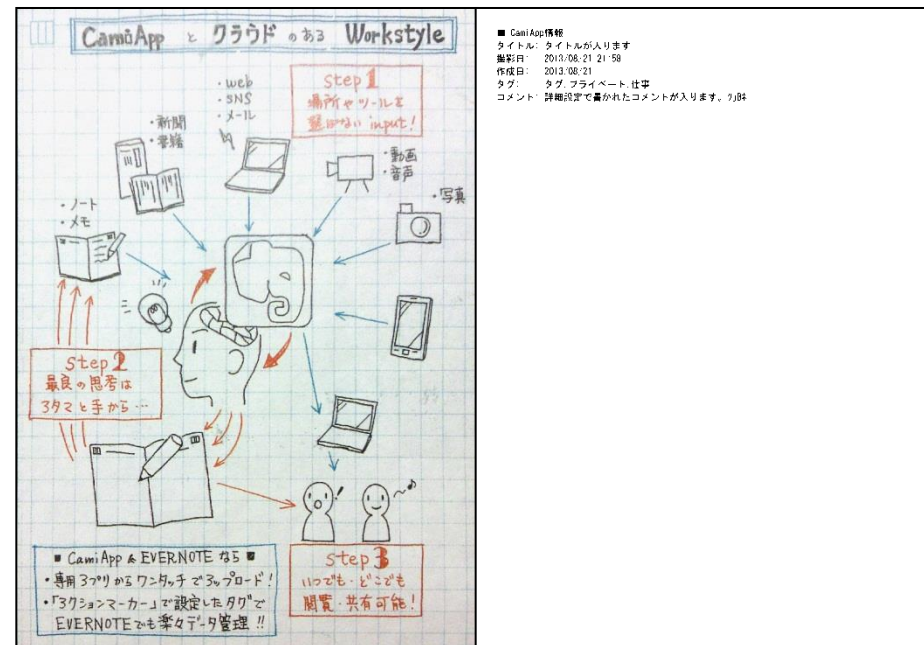 CamiApp と クラウド のある Workstyle
Step 1
場所やツールを
選ばない input!
・web
・SNS
・メール
・新聞
・書籍
・動画
・音声
・写真
・ノート
・メモ
Step 2
最良の思考は
アタマと手から…
■ CamiApp & EVERNOTE なら ■
・専用アプリからワンタッチでアップロード!
・「アクションマーカー」で設定したタグで
EVERNOTEでも楽々データ管理!!
Step 3
いつでも・どこでも
閲覧・共有可能!
■ CamiApp情報
タイトル: タイトルが入ります
撮影日: 2013/08/21 21:58
作成日: 2013/08/21
タグ: タグ,プライベート,仕事
コメント: 詳細設定で書かれたコメントが入ります。